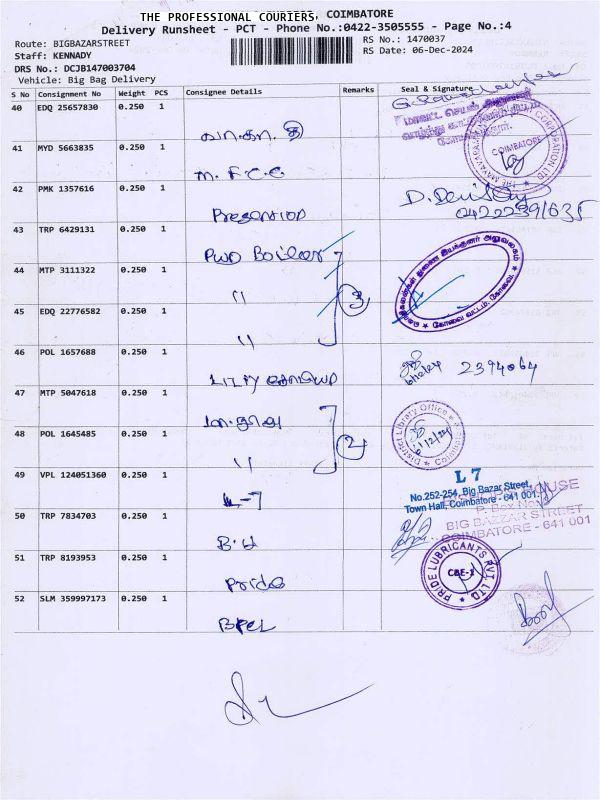 THE PROFESSIONAL COURIERS, COIMBATORE
Delivery Runsheet - PCT - Phone No.:0422-3505555 - Page No.:4
Route: BIGBAZARSTREET
RS No.: 1470037
Staff: KENNADY
RS Date: 06-Dec-2024
DRS No.: DCJB147003704
Vehicle: Big Bag Delivery
S No Consignment No Weight PCS Consignee Details Remarks Seal & Signature
40 EDQ 25657830 0.250 1
41 MYD 5663835 0.250 1 M.F.C.C
COIMBATORE
42 PMK 1357616 0.250 1
43 TRP 6429131 0.250 1 PWD Boiler
44 MTP 3111322 0.250 1 "
3
45 EDQ 22776582 0.250 1 "
46 POL 1657688 0.250 1 LILLY
2394064
47 MTP 5047618 0.250 1
District Library Office
48 POL 1645485 0.250 1 "
2
49 VPL 124051360 0.250 1 L-7
L 7
No.252-254, Big Bazar Street,
Town Hall, Coimbatore - 641 001.
HOUSE
P. Box No
BIG BAZZAR STREET
COIMBATORE - 641 001
50 TRP 7834703 0.250 1 B.H
51 TRP 8193953 0.250 1 Pride
PRIDE LUBRICANTS PVT. LTD
CBE-1
52 SLM 359997173 0.250 1 BPCL